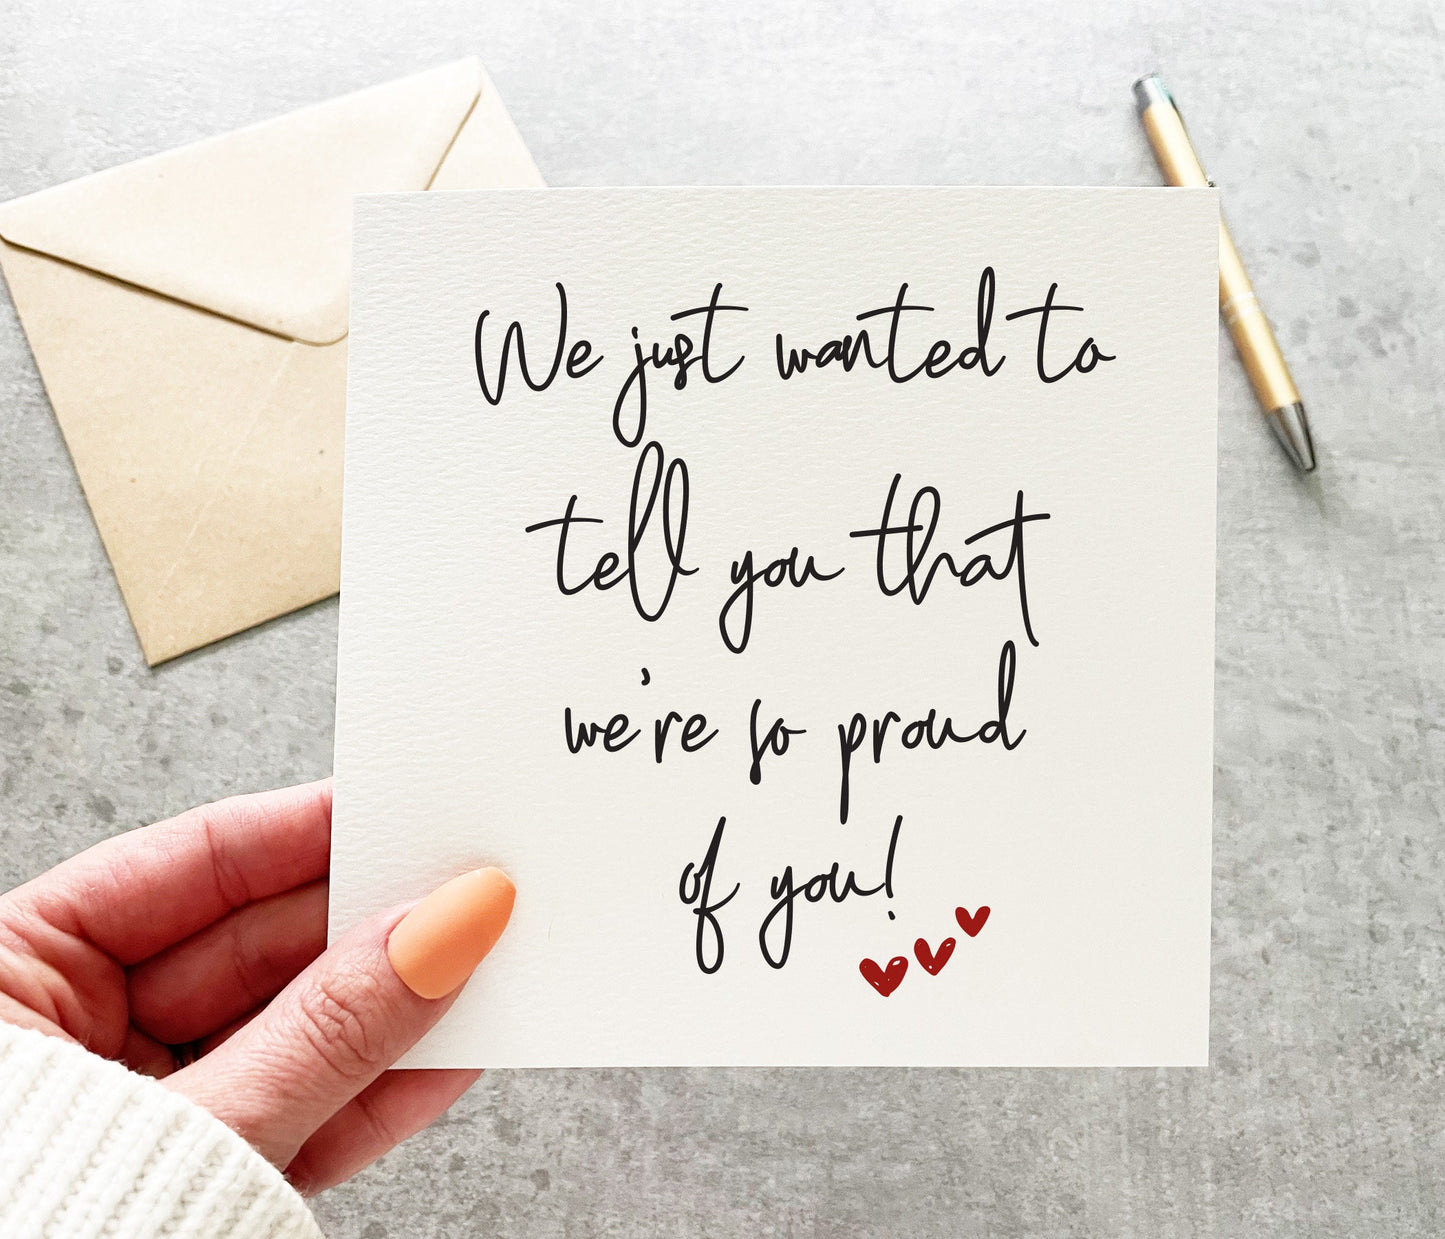 We just wanted to
tell you that
we're so proud
of you!